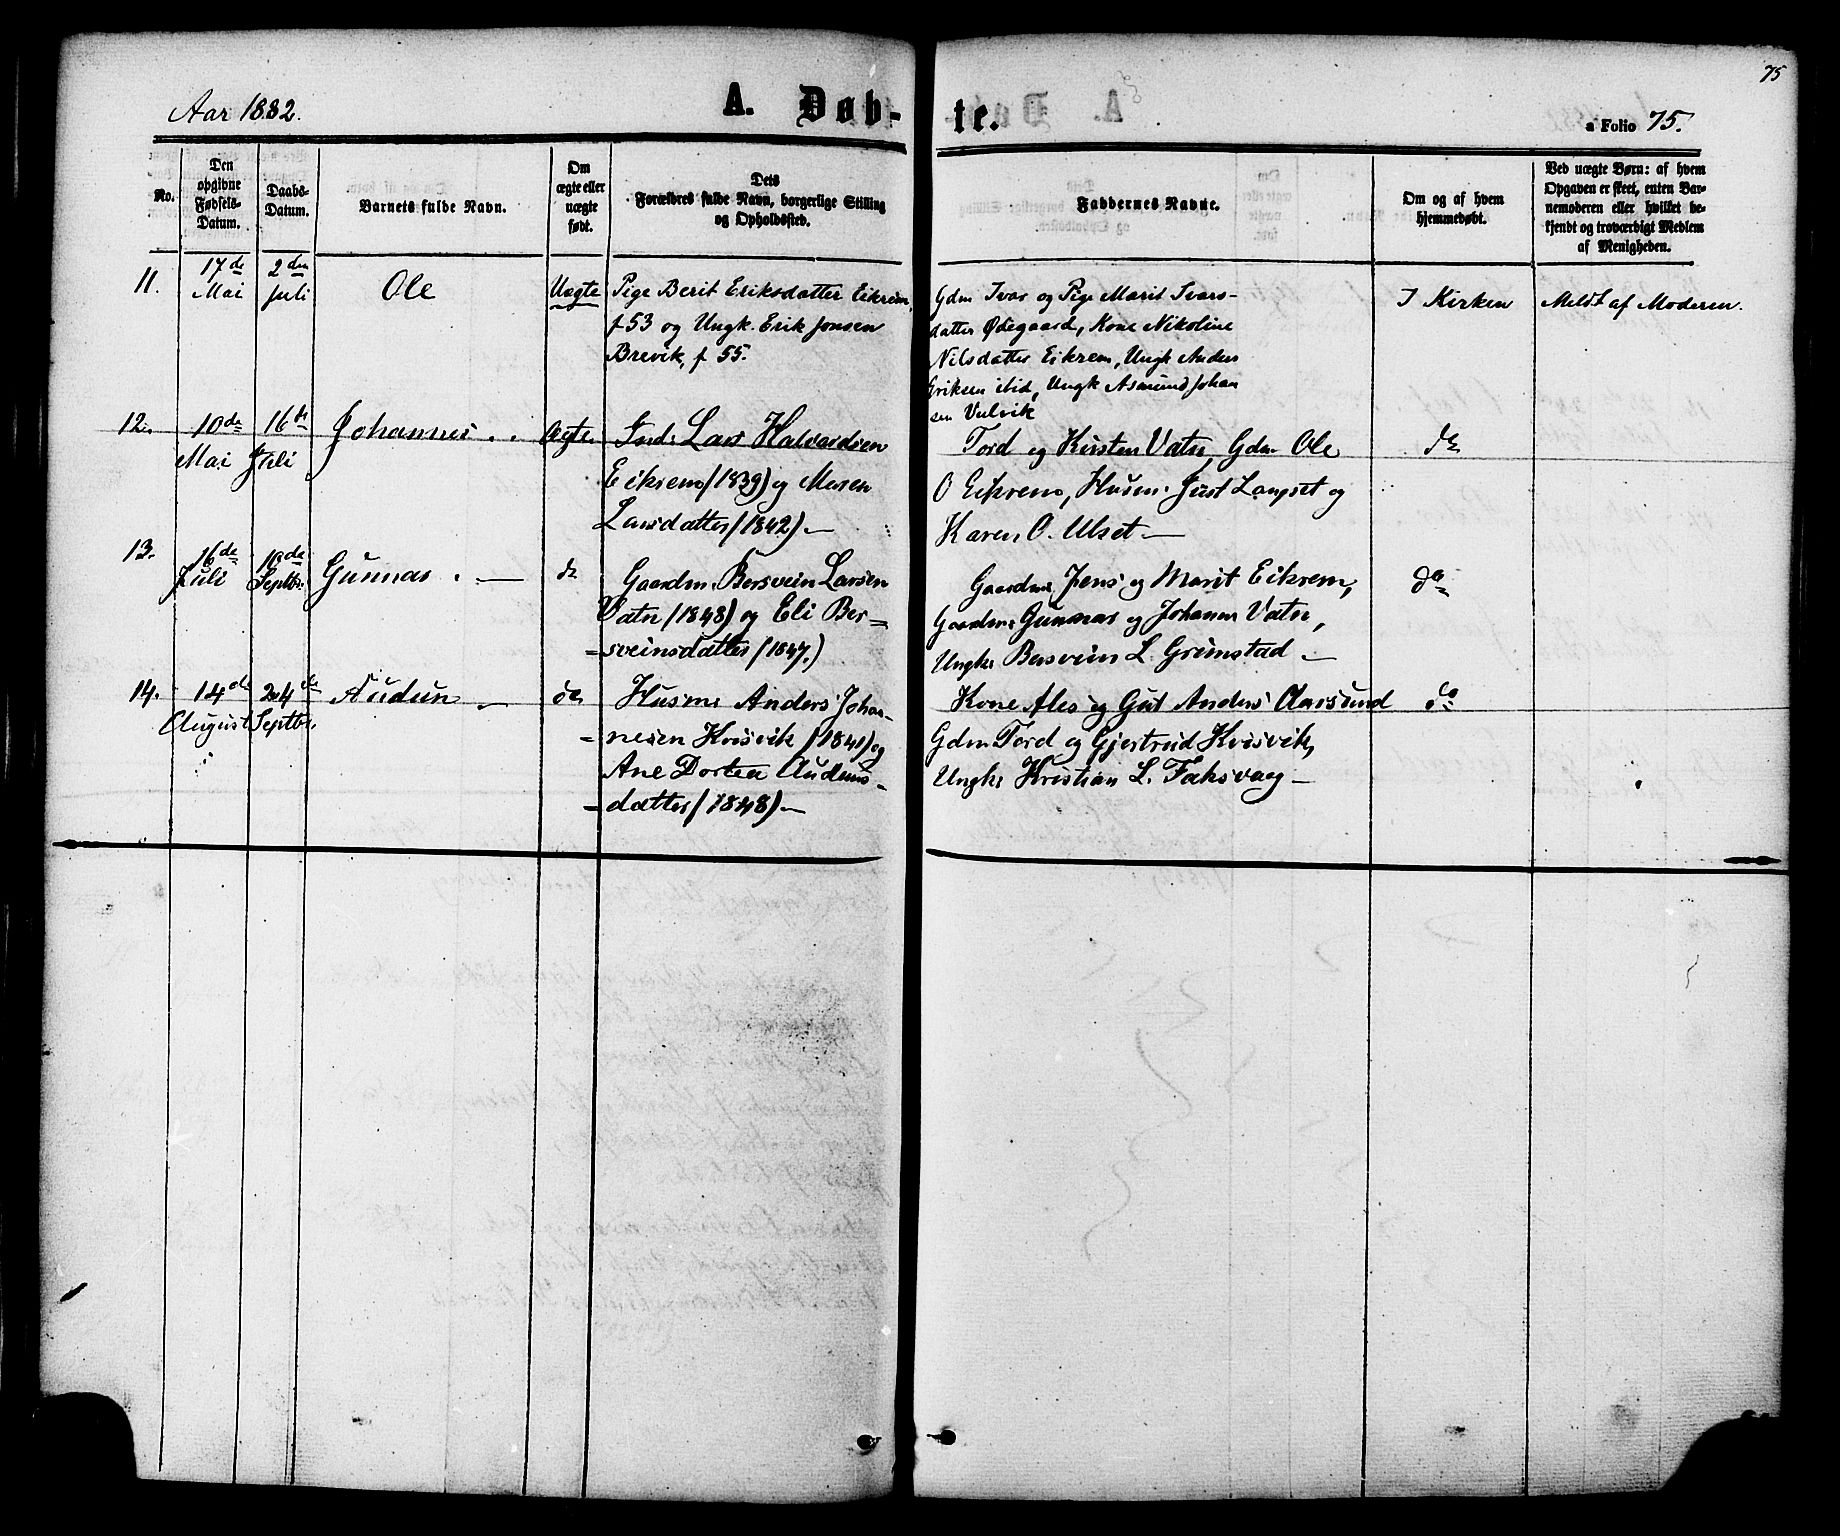 75
Aar 1882.
A. Døb-
te.
a Folio 75.
No.
Den opgivne Fødsels-Datum.
Daabs-Datum.
Barnets fulde Navn.
Om ægte eller uægte født.
Dets Forældres fulde Navn, borgerlige Stilling og Opholdssted.
Faddernes Navne.
Om og af hvem hjemmedøbt.
Ved uægte Børn: af hvem Opgaven er skeet, enten Barnemoderen eller hvilket bekjendt og troværdigt Medlem af Menigheden.
11.
17de
Mai
2den
Juli
Ole
Uægte
Pige Berit Eriksdatter Eikrem,
f 53 og Ungk. Erik Jonsen
Brevik, f 55.
Gdm Ivar og Pige Marit Ivars-
datter Ødegaard, Kone Nikoline
Nilsdatter Eikrem, Ungk Anders
Eriksen ibid, Ungk Asmund Johan
sen Vulvik
I Kirken
Meldt af Moderen.
12.
10de
Mai
16de
Juli
Johannes
Ægte
Lars Halvardsen
Eikrem (1839) og Maren
Larsdatter (1842) —
Tord og Kirsten Vatn, Gdm Ole
O Eikrem, Husm. Just Langset og
Karen O. Ulset —
do
13.
16de
Juli
10de
Septbr.
Gunnar . —
do
Gaardm. Bersvein Larsen
Vatn (1848) og Eli Ber=
=sveinsdatter (1847.)
Gaardm. Jens og Marit Eikrem,
Gaardm. Gunnar og Johanna Vatn,
Ungk. Bersvein L. Grimstad —
do
14.
14de
August
24de
Septbr.
Audun —
do
Husm. Anders Johan-
=nesen Kvisvik (1841) og
Ane Dortea Auduns-
=datter (1848) —
Kone Ales og Gut Anders Aarsund
Gdm Tord og Gjertrud Kvisvik,
Ungk. Kristian L. Foksvag —
do